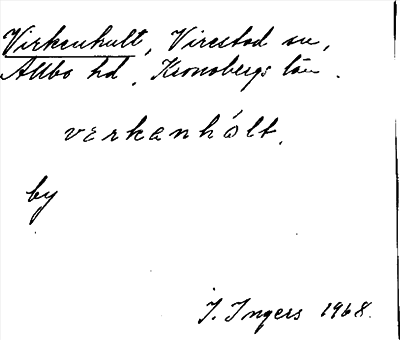 Virkenhult, Virestad sn,
Allbo hd, Kronobergs län.
verkanhólt.
by
I. Ingers 1968.